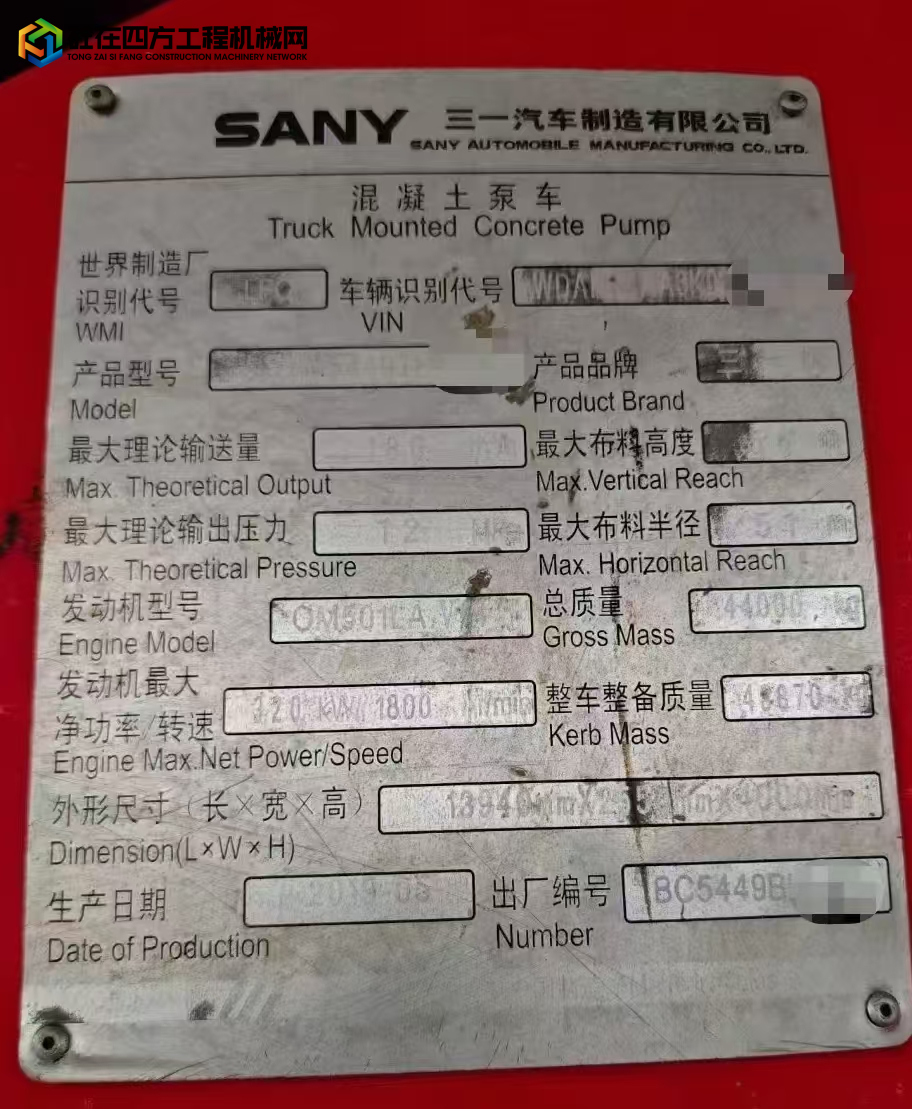 在四方工程机械网
TONG ZAI SI FANG CONSTRUCTION MACHINERY NETWORK
SANY 三一汽车制造有限公司
SANY AUTOMOBILE MANUFACTURING CO., LTD.
混凝土泵车
Truck Mounted Concrete Pump
世界制造厂
识别代号
WMI
车辆识别代号
VIN
产品型号
Model
产品品牌 三一
Product Brand
最大理论输送量
Max. Theoretical Output
最大布料高度
Max.Vertical Reach
最大理论输出压力 12 MPa
Max. Theoretical Pressure
最大布料半径 51 m
Max. Horizontal Reach
发动机型号 OM501LA
Engine Model
总质量 44000 kg
Gross Mass
发动机最大
净功率/转速 kW 1800 r/min
Engine Max.Net Power/Speed
整车整备质量
Kerb Mass
外形尺寸(长×宽×高) 13940mm
Dimension(L×W×H)
生产日期 2019-08
Date of Production
出厂编号 BC5449B
Number